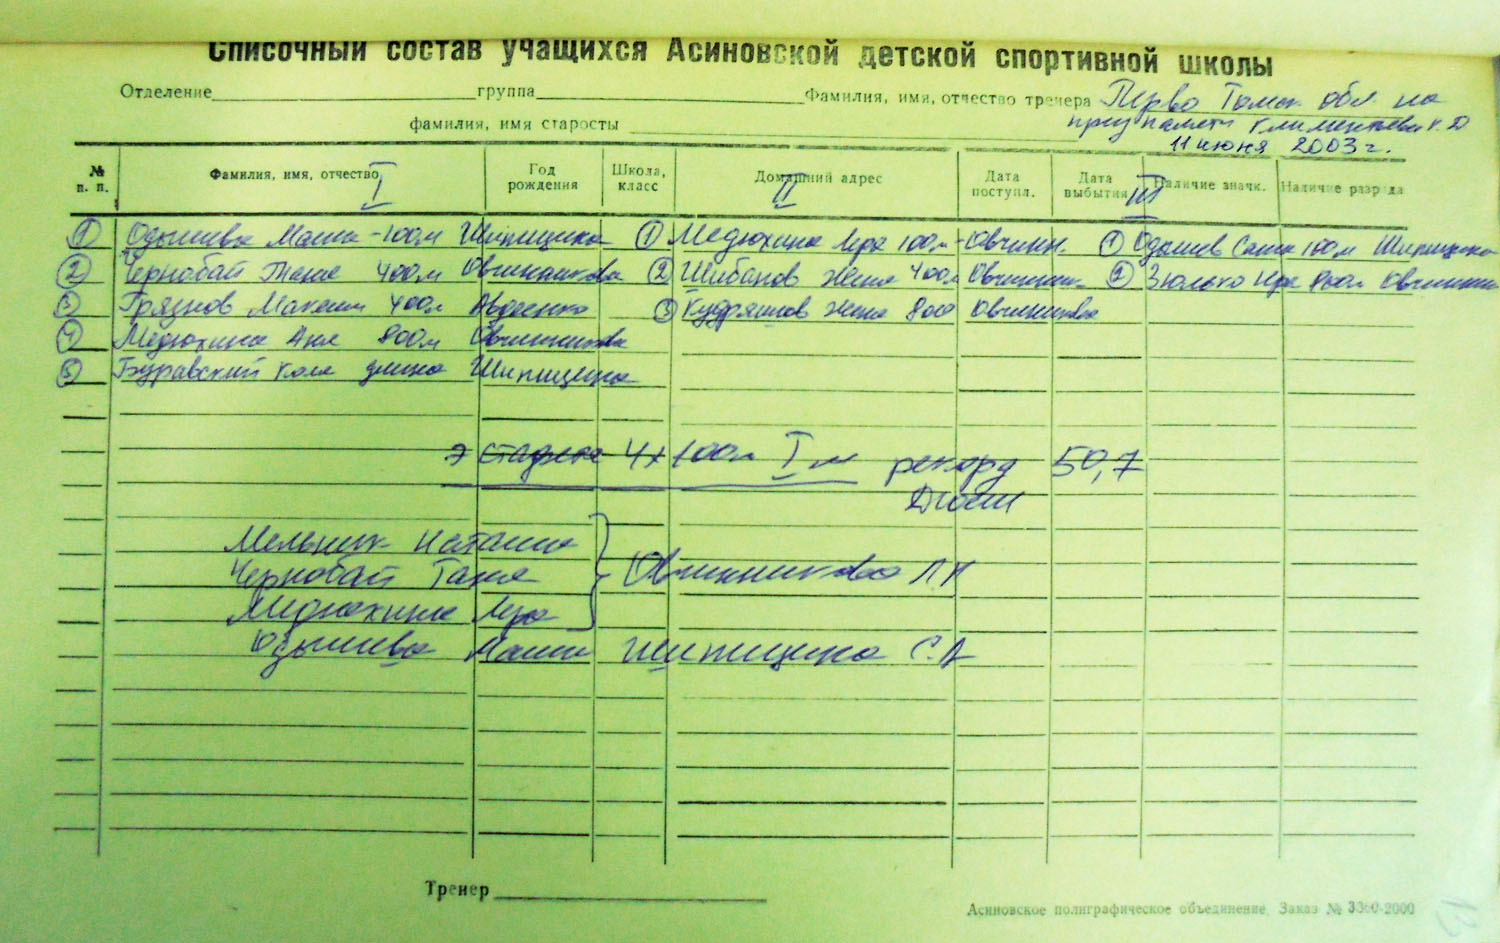 Списочный состав учащихся Асиновской детской спортивной школы
Отделение группа Фамилия, имя, отчество тренера Перво Томск. обл. на
фамилия, имя старосты приз памяти Климентьева К.Д
11 июня 2003 г.
№ п. п. Фамилия, имя, отчество Год рождения Школа, класс Домашний адрес Дата поступл. Дата выбытия Наличие значк. Наличие разряда
I II III
1 Одышева Маша - 100м Шипицина 1 Медюхина Лера 100м - Овчинн. 1 Одышев Саша 100м Шипицина
2 Чернобай Таня 400м Овчинникова 2 Шибанов Женя 400м Овчинник 2 Зюлько Ира 800м Овчинник
3 Грязнов Максим 400м Авдеенко 3 Кудряшов Женя 800 Овчинникова
4 Медюхина Аня 800м Овчинникова
5 Буравский Коля длина Шипицина
Эстафета 4х100м I м рекорд 50,7
ДЮСШ
Мельник Наташа
Чернобай Таня Овчинникова Л.П
Медюхина Лера
Одышева Маша Шипицина С.А
Тренер
Асиновское полиграфическое объединение. Заказ № 3360-2000